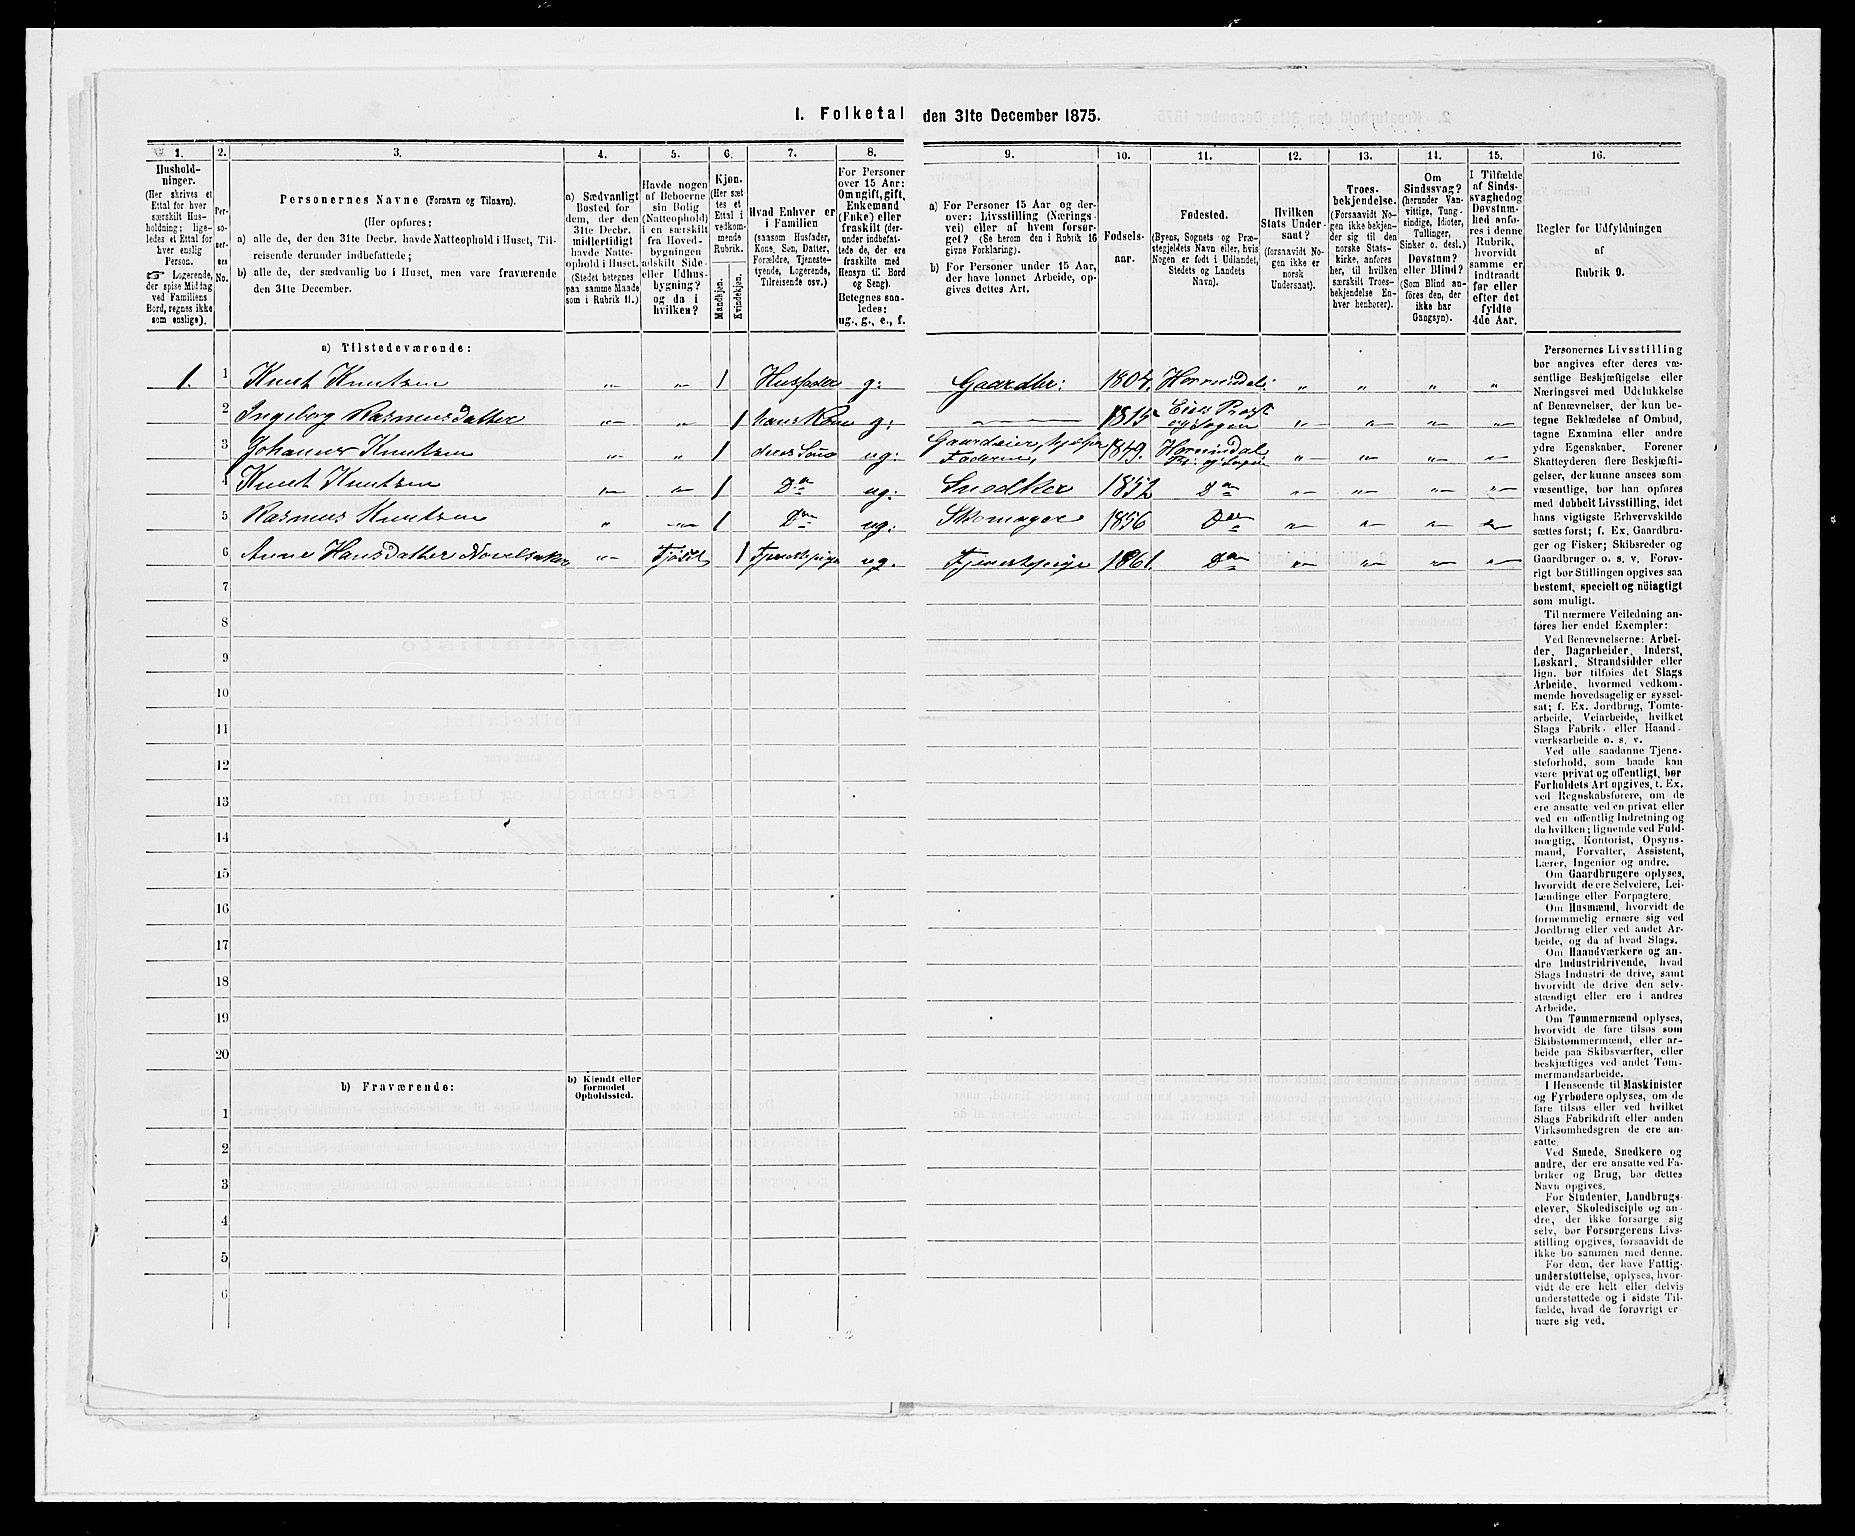 I. Folketal den 31te December 1875.
1. 2. 3. 4. 5. 6. 7. 8. 9. 10. 11. 12. 13. 14. 15. 16.
Hushold-
ninger.
(Her skrives et
Ettal for hver
særskilt Hus-
holdning; lige-
ledes et Ettal for
hver enslig
Person.
☞ Logerende,
der spise Middag
ved Familiens
Bord, regnes ikke
som enslige).
Per-
so-
ner-
nes
No.
Personernes Navne (Fornavn og Tilnavn).
(Her opføres:
a) alle de, der den 31te Decbr. havde Natteophold i Huset, Til-
reisende derunder indbefattede;
b) alle de, der sædvanlig bo i Huset, men vare fraværende
den 31te December.
a) Sædvanligt
Bosted for
dem, der den
31te Decbr.
midlertidigt
havde Natte-
ophold i Huset.
(Stedet betegnes
paa samme Maade
som i Rubrik 11.)
Havde nogen
af Beboerne
sin Bolig
(Natteophold)
i en særskilt
fra Hoved-
bygningen
adskilt Side-
eller Udhus-
bygning?
og da i
hvilken?
Kjøn.
(Her sæt-
tes et
Ettal i
vedkom-
mende
Rubrik.
Mandkjøn.
Kvindekjøn.
Hvad Enhver er
i Familien
(saasom Husfader,
Kone, Søn, Datter,
Forældre, Tjeneste-
tyende, Logerende,
Tilreisende osv.)
For Personer
over 15 Aar:
Om ugift, gift,
Enkemand
(Enke) eller
fraskilt (der-
under indbefat-
tede de, der ere
fraskilte med
Hensyn til Bord
og Seng).
Betegnes saa-
ledes:
ug., g., e., f.
a) For Personer 15 Aar og der-
over: Livsstilling (Nærings-
vei) eller af hvem forsør-
get? (Se herom den i Rubrik 16
givne Forklaring).
b) For Personer under 15 Aar,
der have lønnet Arbeide, op-
gives dettes Art.
Fødsels-
aar.
Fødested.
(Byens, Sognets og Præ-
stegjeldets Navn eller, hvis
Nogen er født i Udlandet,
Stedets og Landets
Navn).
Hvilken
Stats Under-
saat?
(forsaavidt No-
gen ikke er
norsk
Undersaat).
Troes-
bekjendelse.
(Forsaavidt No-
gen ikke bekjen-
der sig til den
norske Stats-
kirke, anføres
her, til hvilken
særskilt Troes-
bekjendelse En-
hver henhører).
Om
Sindssvag?
(herunder Van-
vittige, Tung-
sindige, Idioter,
Tullinger,
Sinker o. desl.)
Døvstum?
eller Blind?
(Som Blind an-
føres den, der
ikke har
Gangsyn).
I Tilfælde
af Sinds-
svaghed og
Døvstum-
hed anfø-
res i denne
Rubrik,
hvorvidt
samme er
indtraadt
før eller
efter det
fyldte
4de Aar.
Regler for Udfyldningen
af
Rubrik 9.
a) Tilstedeværende:
1. 1 Knut Knutsen „– „– 1 Husfader g: Gaardbr: 1807. Hornindal: „ „ „ „
2 Ingeborg Rasmusdatter „– „ 1 hans Kone g: — 1815 Eids Præst og Sogn „– „– „– „–
3 Johannes Knutsen „– „ 1 deres Søn ug: Gaardeier, hjelper Faderen, 1849. Hornindal Pr: og Sogn „– „– „– „–
4 Knut Knutsen „– „– 1 Do ug: Snedker 1852 Do „– „– „– „–
5 Rasmus Knutsen „ „– 1 Do ug: Skomager 1856 Do „– „– „– „–
6 Anne Hansdatter „– 1 Tjenestepige ug. Tjenestepige 1861. Do „– „– „– „–
7
8
9
10
11
12
13
14
15
16
17
18
19
20
b) Fraværende:
b) Kjendt eller
formodet
Opholdssted.
1
2
3
4
5
6
Personernes Livsstilling
bør angives efter deres væ-
sentlige Beskjæftigelse eller
Næringsvei med Udelukkelse
af Benævnelser, der kun be-
tegne Beklædelse af Ombud,
tagne Examina eller andre
ydre Egenskaber. Forener
Skatteyderen flere Beskjæfti-
gelser, der kunne ansees som
væsentlige, bør han opføres
med dobbelt Livsstilling, idet
hans vigtigste Erhvervskilde
sættes først; f. Ex. Gaardbru-
ger og Fisker; Skibsreder og
Gaardbruger o. s. v. Forøv-
rigt bør Stillingen opgives saa
bestemt, specielt og nöiagtigt
som muligt.
Til nærmere Veiledning an-
føres her endel Exempler:
Ved Benævnelserne: Arbei-
der, Dagarbeider, Inderst,
Løskarl, Strandsidder eller
lign. bør tilføies det Slags
Arbeide, hvormed vedkom-
mende hovedsagelig er syssel-
sat; f. Ex. Jordbrug, Tomte-
arbeide, Veiarbeide, hvilket
Slags Fabrik- eller Haand-
værksarbeide o. s. v.
Ved alle saadanne Tjene-
steforhold, som baade kan
være privat og offentligt, bør
Forholdets Art opgives, t. Ex.
ved Regnskabsførere, om de
ere ansatte ved en privat eller
ved en offentlig Indretning og
da hvilken; lignende ved Fuld-
mægtig, Kontorist, Opsyns-
mand, Forvalter, Assistent,
Lærer, Ingeniør og andre.
Om Gaardbrugere oplyses,
hvorvidt de ere Selveiere, Lei-
lændinge eller Forpagtere.
Om Husmænd, hvorvidt de
fornemmelig ernære sig ved
Jordbrug eller ved andet Ar-
beide, og da af hvad Slags.
Om Haandværkere og an-
dre Industridrivende, hvad
Slags Industri de drive, samt
hvorvidt de drive den selv-
stændigt eller ere i andres
Arbeide.
Om Tømmermænd oplyses,
hvorvidt de fare tilsøs som
Skibstømmermænd, eller ar-
beide paa Skibsværfter, eller
beskjæftiges ved andet Tøm-
mermandsarbeide.
I Henseende til Maskinister
og Fyrbødere oplyses, om de
fare tilsøs eller ved hvilket
Slags Fabrikdrift eller anden
Virksomhedsgren de ere an-
satte.
Ved Smede, Snedkere og
andre, der ere ansatte ved Fa-
briker og Brug, bør dettes
Navn opgives.
For Studenter, Landbrugs-
elever, Skoledisciple og an-
dre, der ikke forsørge sig
selv, bør Forsørgerens Livs-
stilling opgives, forsaavidt de
ikke bo sammen med denne.
For dem, der have Fattig-
understøttelse, oplyses, hvor-
vidt de ere helt eller delvis
understøttede og i sidste Til-
fælde, hvad de forøvrigt er-
nære sig ved.